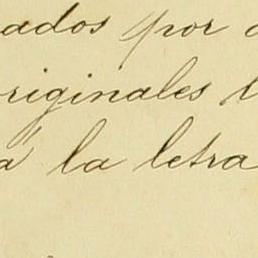 ados por
originales
á la letra